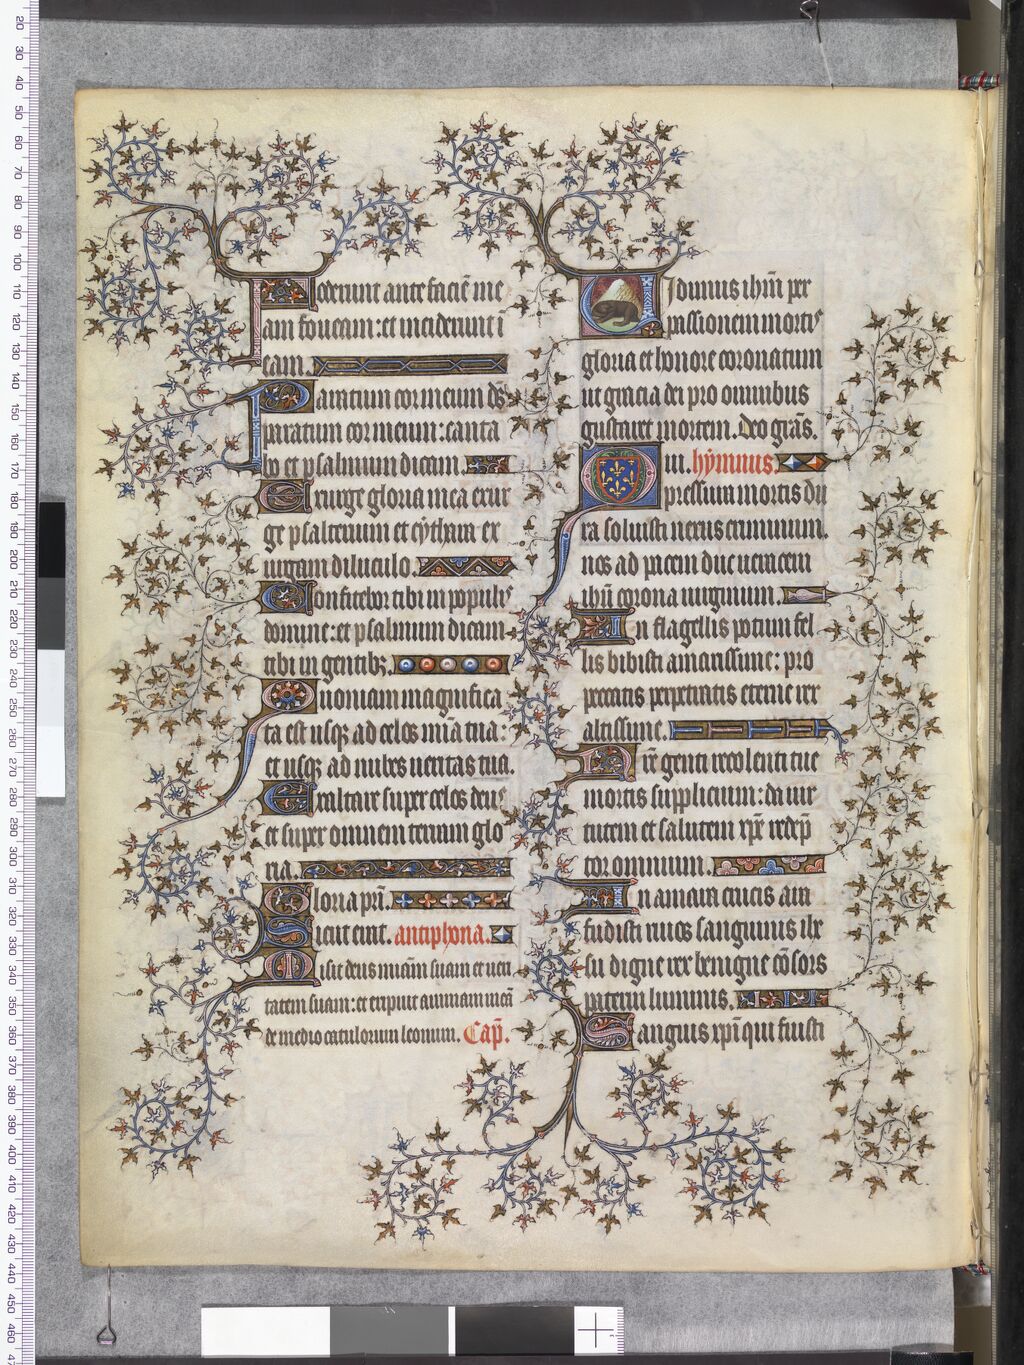 Foderunt ante faciē me
am foueam : et inciderunt ī
eam.
Paratum cor meum ds̄
paratum cor meum : canta
bo et psalmum dicam.
Exurge gloria mea exur
ge psalterium et cytħara ex
urgam diluculo.
Confitebor tibi in populis
domine : et psalmum dicam
tibi in gentibꝫ
Quoniam magnifica
ta est usqꝫ ad celos mīa tua :
et usqꝫ ad nubes ueritas tua.
Exaltare super celos deus
et super omnem terram glo
ria.
Gloria pr̄i.
Sicut erat. antiphona.
Misit deus mīcam suam et ueri
tatem suam : et eripuit animam meā
de medio catulorum leonum. Cap̄.
Uidimus ihm̄ per
passionem mortis
gloria et honore coronatum
ut gracia dei pro omnibus
gustaret mortem. Deo grās.
hymnus.
Qui pressura mortis du
ra soluisti nexus criminum.
nos ad pacem duc ueracem
ihū corona uirginum.
In flagellis potum fel
lis bibisti amarissime : pro
peccatis perpetratis eterne rex
altissime.
Da r̄e genti recolenti tue
mortis supplicium : da uir
tutem et salutem xp̄e redēp
tor omnium.
In amara crucis ara
fudisti riuos sanguinis ihe
su digne rex benigne cōsors
paterni luminis.
Sanguis xp̄i qui fuisti